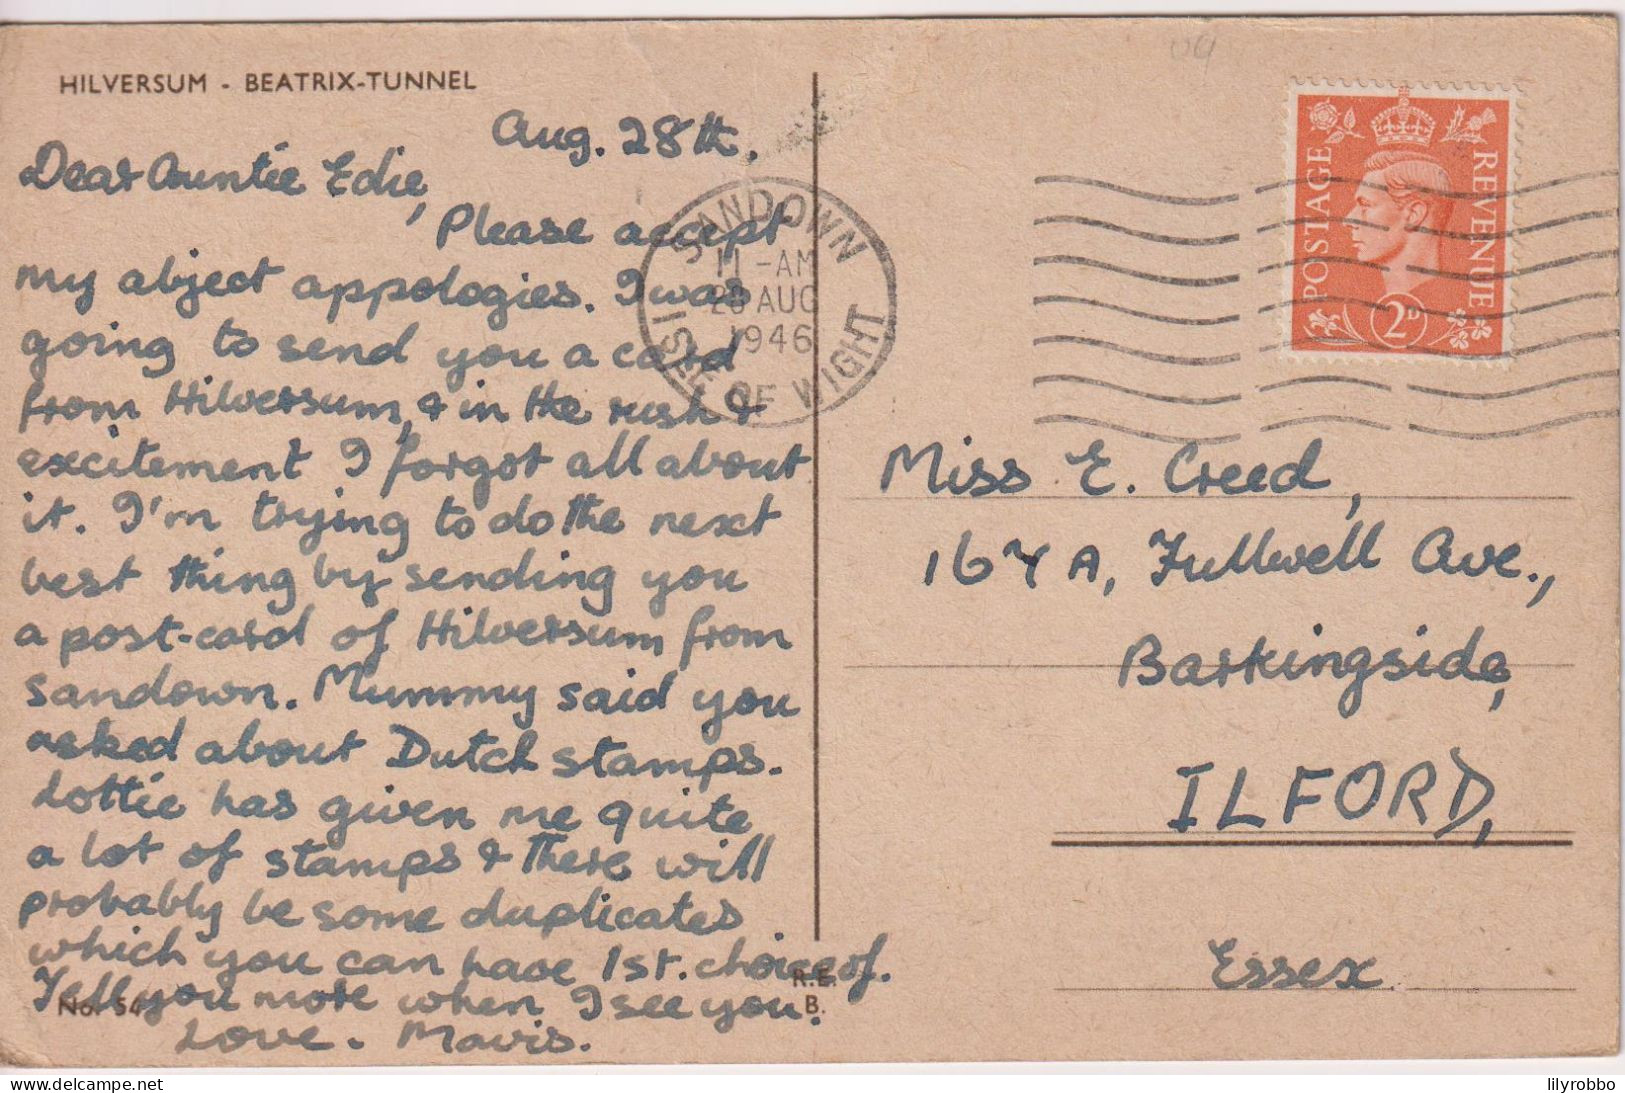 HILVERSUM - BEATRIX-TUNNEL
Aug. 28th.
Dear Auntie Edie,
Please accept
my abject appologies. I was
going to send you a card
from Hilversum, & in the rush &
excitement I forgot all about
it. I'm trying to do the next
best thing by sending you
a post-card of Hilversum from
Sandown. Mummy said you
asked about Dutch stamps.
Lottie has given me quite
a lot of stamps & there will
probably be some duplicates
which you can have 1st. choice of.
Tell you more when I see you.
Love. Mavis.
No. 54
R.E.
B.
SANDOWN
11-AM
28 AUG
1946
ISLE OF WIGHT
POSTAGE
REVENUE
2D
Miss E. Creed,
167A, Fullwell Ave.,
Barkingside,
ILFORD,
Essex
lilyrobbo